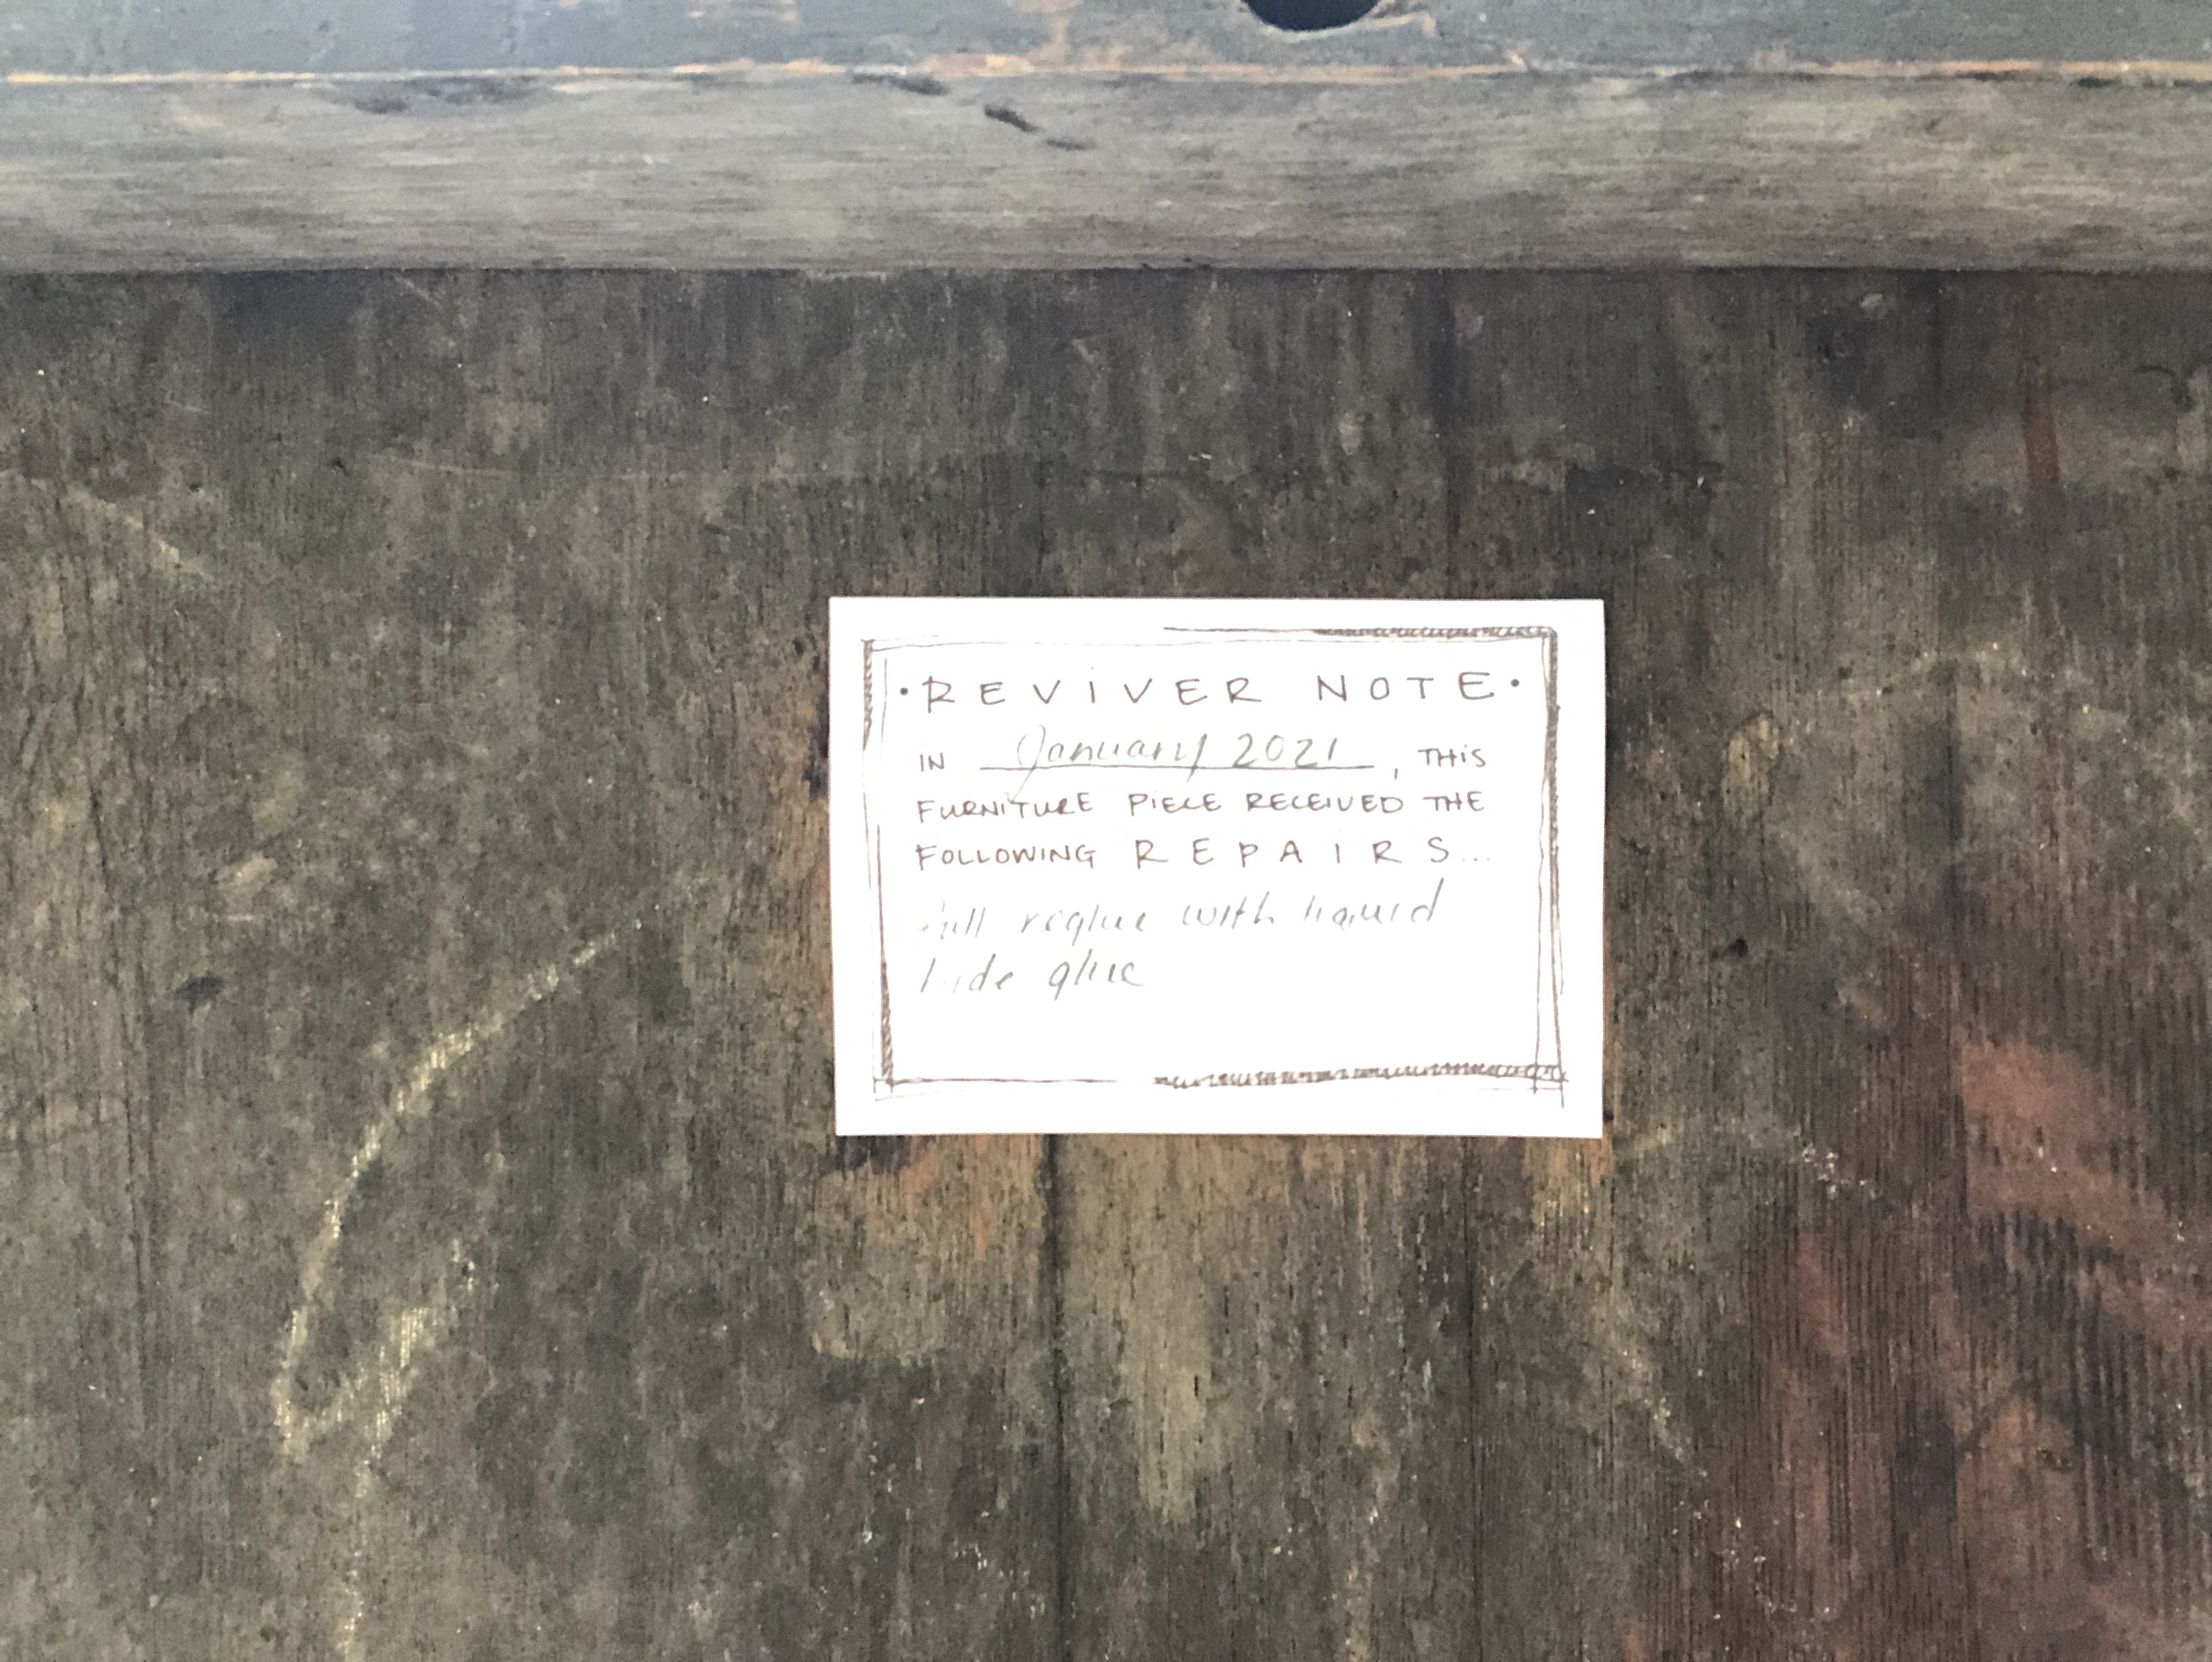 ·REVIVER NOTE·
IN January 2021, THIS
FURNITURE PIECE RECEIVED THE
FOLLOWING REPAIRS...
full reglue with liquid
hide glue